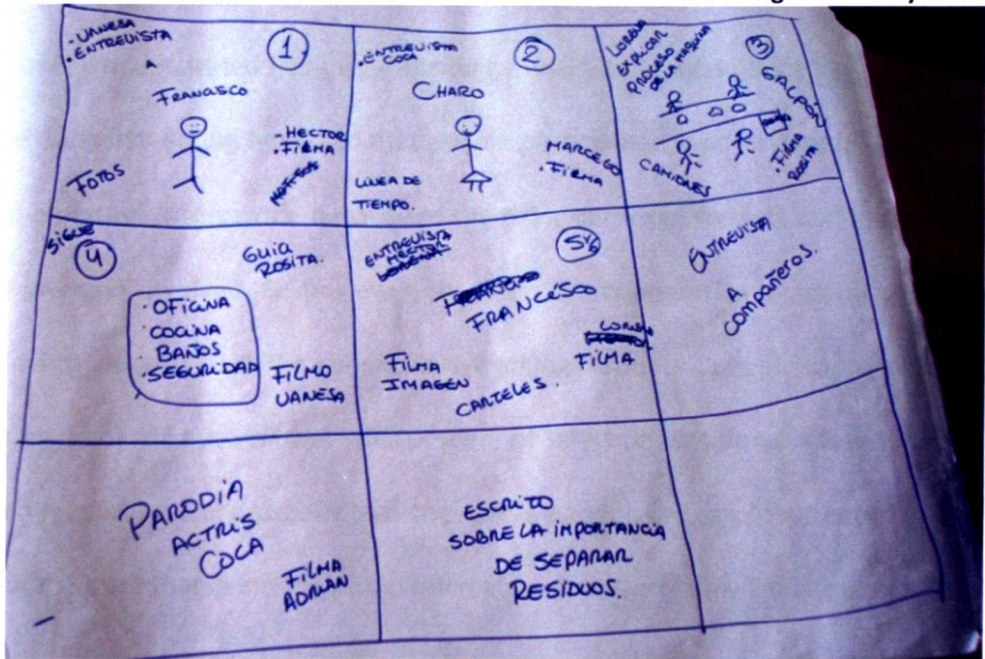 · VANESA
· ENTREVISTA
A
FRANCISCO
1
FOTOS
- HECTOR
· FILMA
· ENTREVISTA
COCA
2
CHARO
LINEA DE
TIEMPO.
MARCEGO
· FILMA
LORENA
EXPLICAR
PROCESO
DE LA MAQUINA
3
GALPÓN
CAMIONES
· FILMA
ROSITA
SIGUE
4
GUIA
ROSITA.
· OFICINA
· COCINA
BAÑOS
· SEGURIDAD
FILMO
VANESA
ENTREVISTA
HECTOR
5
FRANCISCO
FILMA
IMAGEN
CARTELES.
LORENA
FILMA
ENTREVISTA
A
COMPAÑEROS.
PARODIA
ACTRIS
COCA
FILMA
ADRIAN
ESCRITO
SOBRE LA IMPORTANCIA
DE SEPARAR
RESIDUOS.